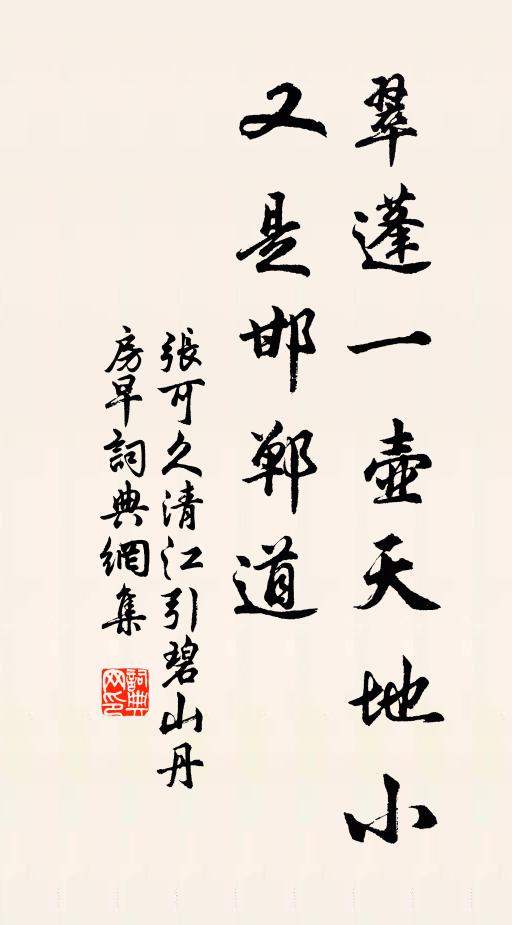 翠蓬一壺天地小
又是邯鄲道
張可久清江引碧山丹
房早詞典網集
詞典网印